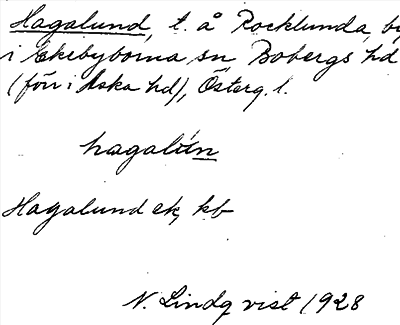 Hagalund, t. å Rocklunda by
i Ekebyborna sn Bobergs hd
(förr i Aska hd), Österg. l.
hagalún
Hagalund ek, kb
N. Lindqvist 1928